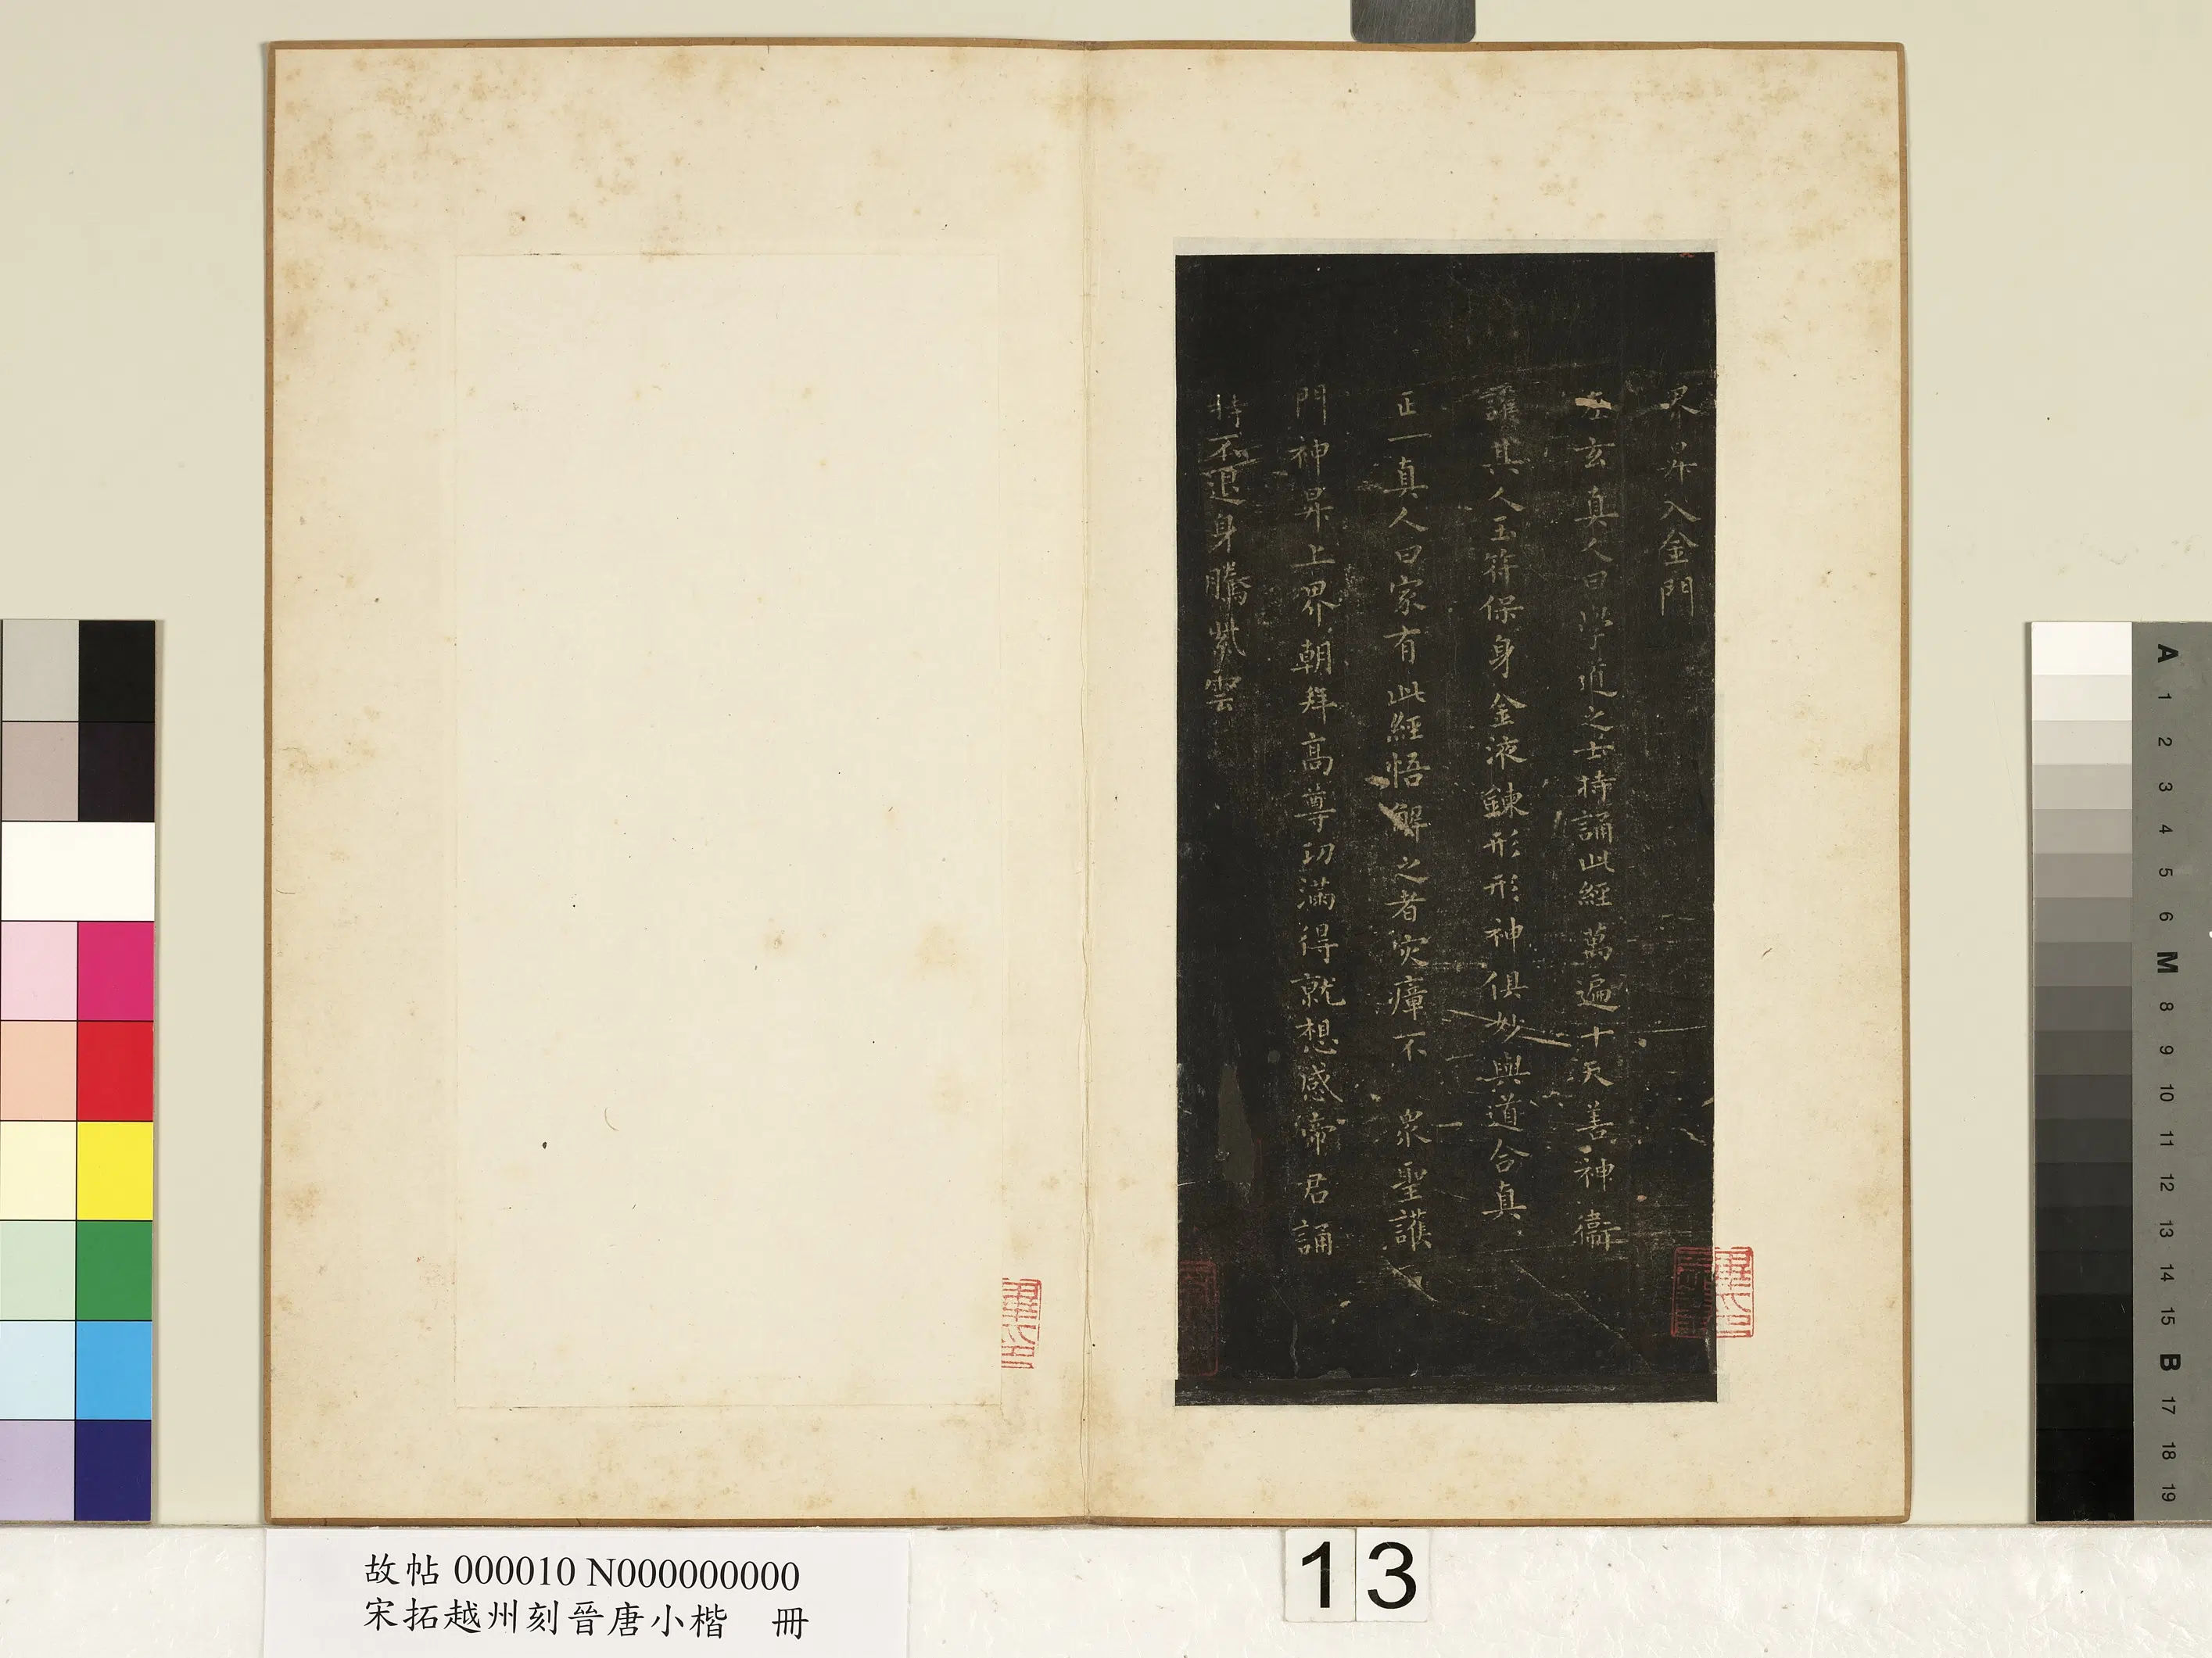 界昇入金門
左玄真人曰學道之士持誦此經萬遍十天善神衞
護其人玉符保身金液鍊形形神俱妙與道合真
正一真人曰家有此經悟解之者灾瘴不 衆聖護
門神昇上界朝拜高尊功滿得就想感帝君誦
持不退身騰紫雲
故帖 000010 N000000000
宋拓越州刻晉唐小楷 冊
13
A
1
2
3
4
5
6
M
8
9
10
11
12
13
14
15
B
17
18
19